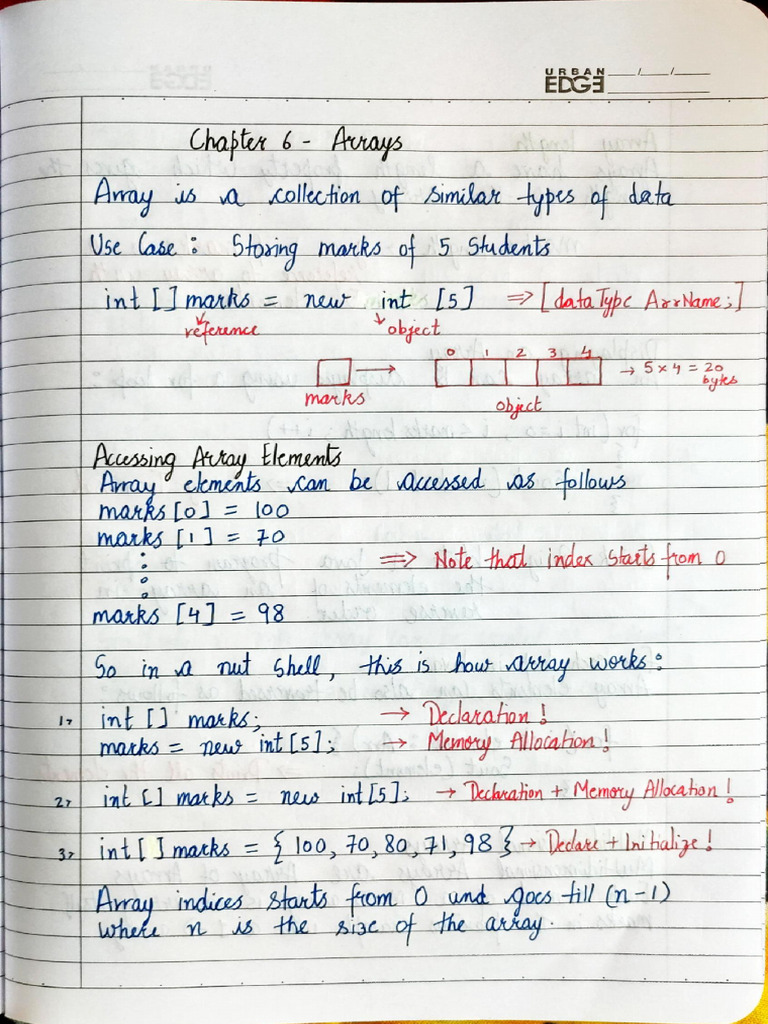 URBAN
EDGE
Chapter 6 - Arrays
Array is a collection of similar types of data
Use Case : Storing marks of 5 Students
int [ ] marks = new int [5] ⇒ [dataType ArrName;]
reference object
0 1 2 3 4
→ 5 × 4 = 20
bytes
marks object
Accessing Array Elements
Array elements can be accessed as follows
marks [0] = 100
marks [1] = 70
⇒ Note that index starts from 0
marks [4] = 98
So in a nut shell, this is how array works :
1> int [ ] marks; → Declaration !
marks = new int [5]; → Memory Allocation !
2> int [ ] marks = new int[5]; → Declaration + Memory Allocation !
3> int [ ] marks = { 100, 70, 80, 71, 98 } → Declare + Initialize !
Array indices starts from 0 and goes till (n-1)
where n is the size of the array.